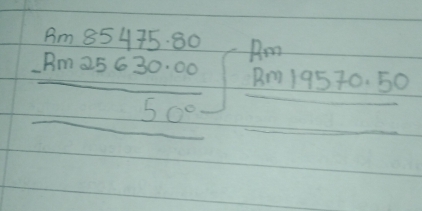 Rm 85475.80
-Rm 25630.00
50°
Rm
Rm 19570.50